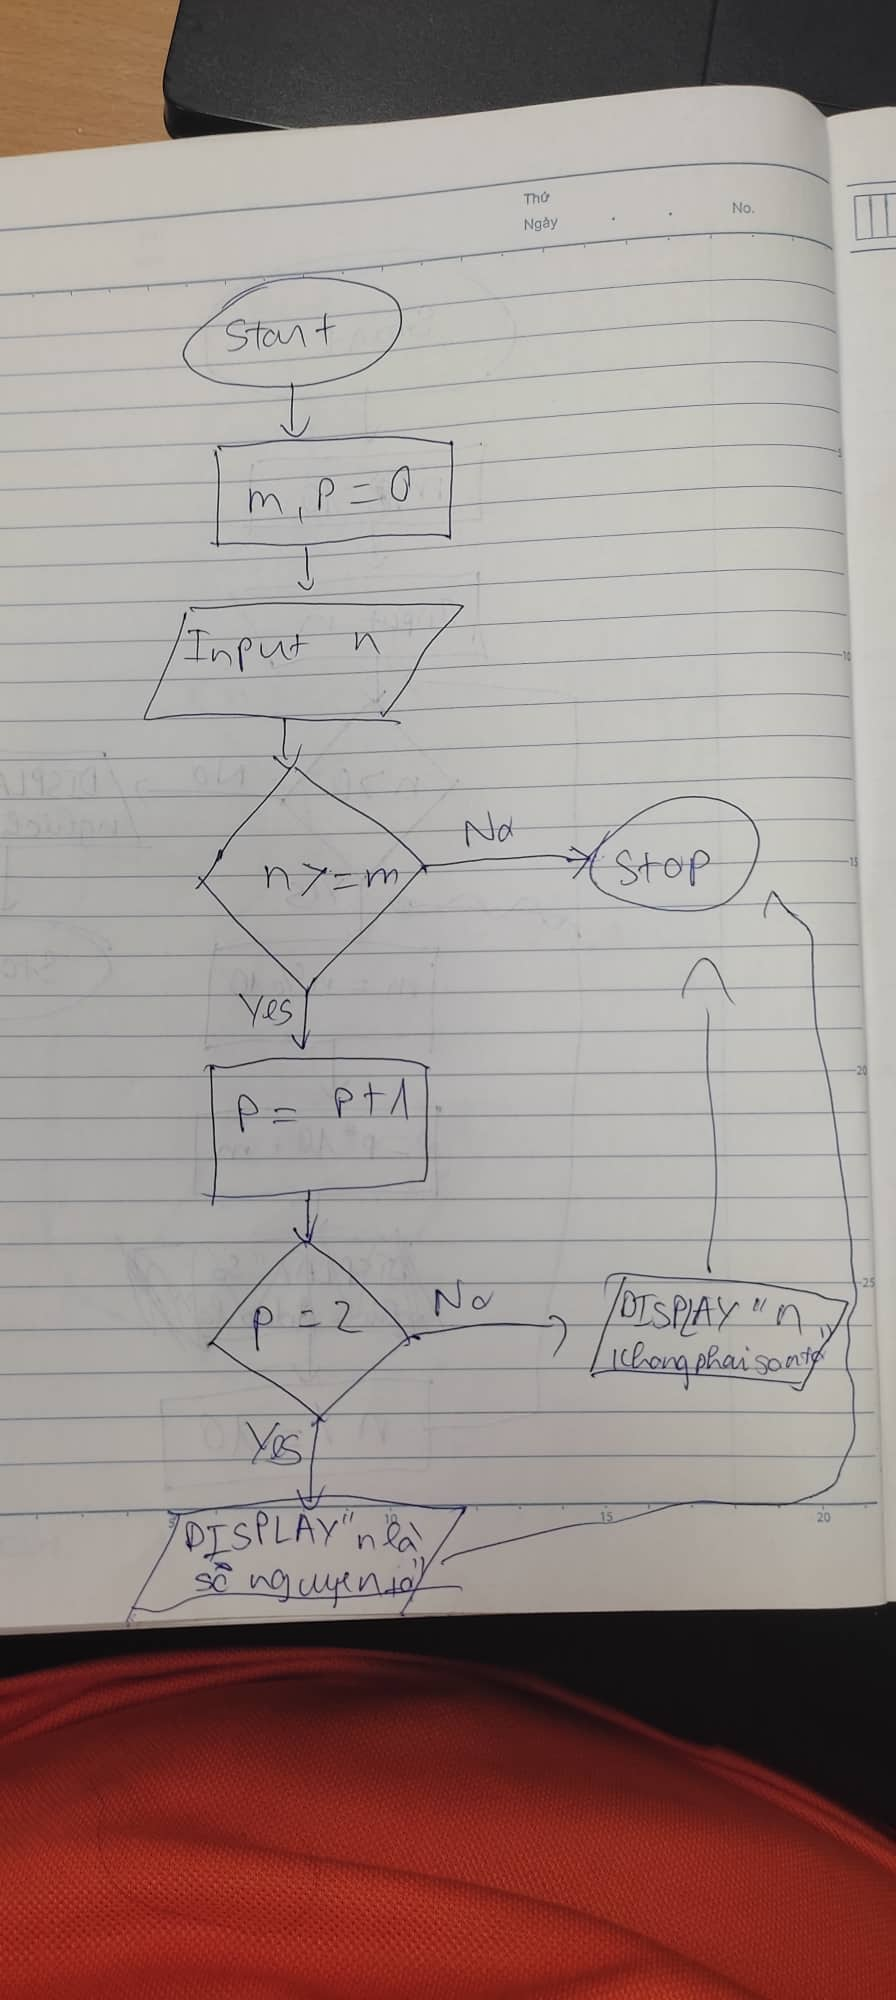 Thứ
Ngày . . No.
Start
m, p = 0
Input n
n >= m
No
Stop
Yes
p = p+1
p = 2
No
DISPLAY "n
khong phai so nto"
Yes
DISPLAY "n là
số nguyen tố"
10
15
20
5
10
15
20
25